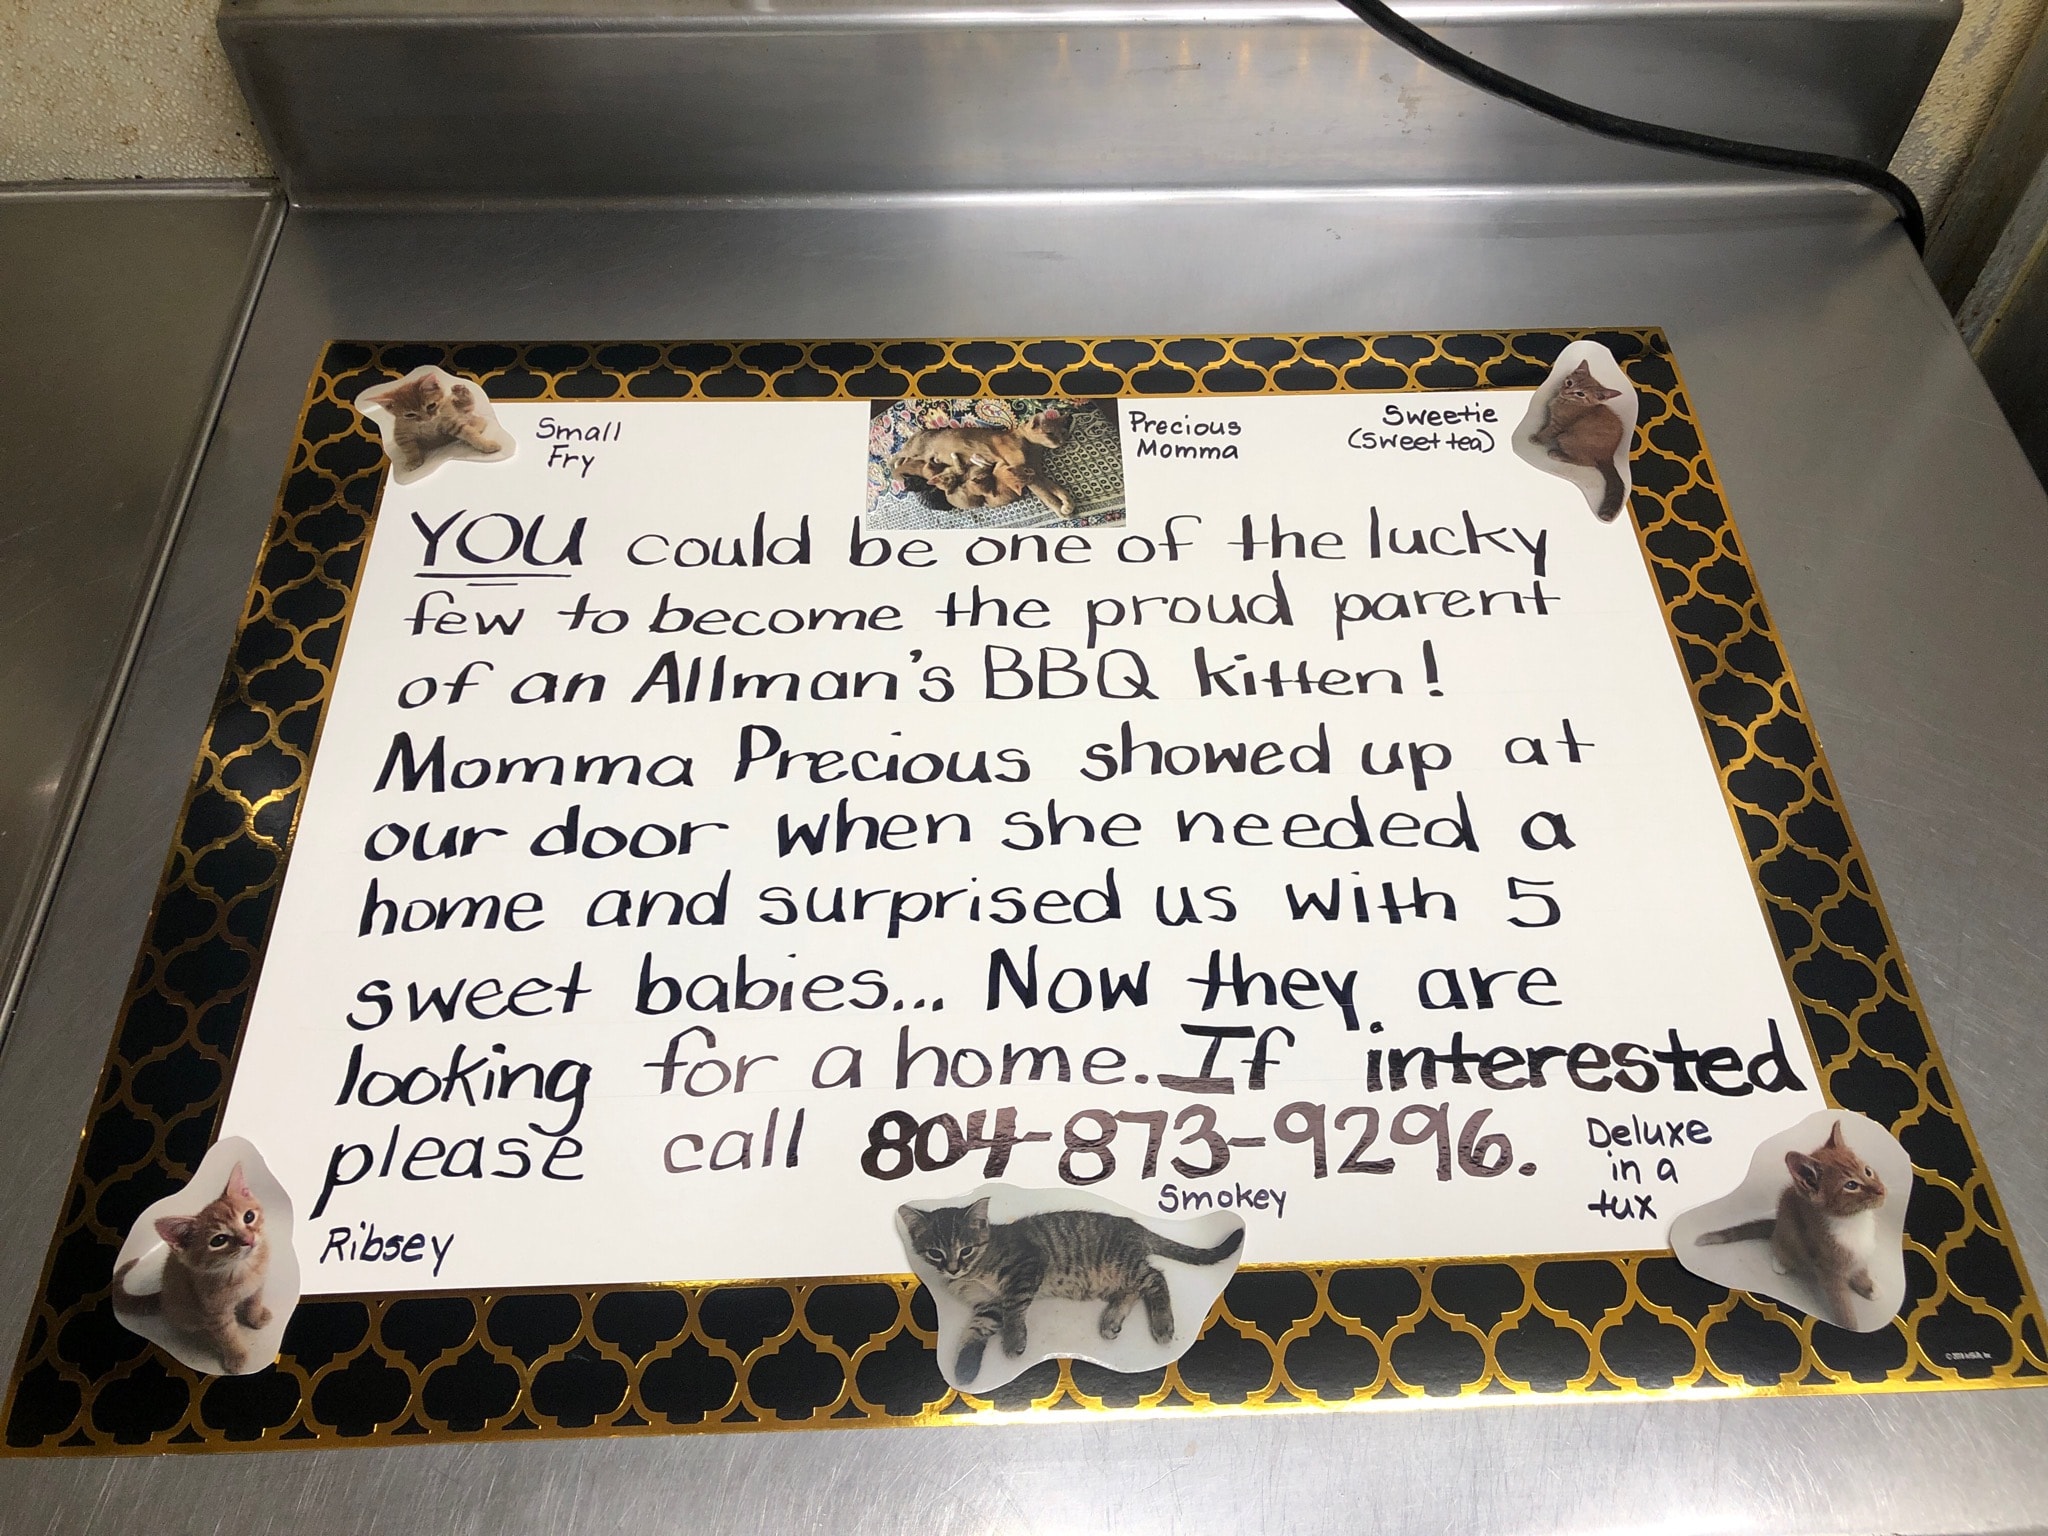 Small
Fry
Precious
Momma
Sweetie
(Sweet tea)
YOU could be one of the lucky
few to become the proud parent
of an Allman's BBQ kitten!
Momma Precious showed up at
our door when she needed a
home and surprised us with 5
sweet babies... Now they are
looking for a home. If interested
please call 804-873-9296.
Deluxe
in a
tux
Smokey
Ribsey